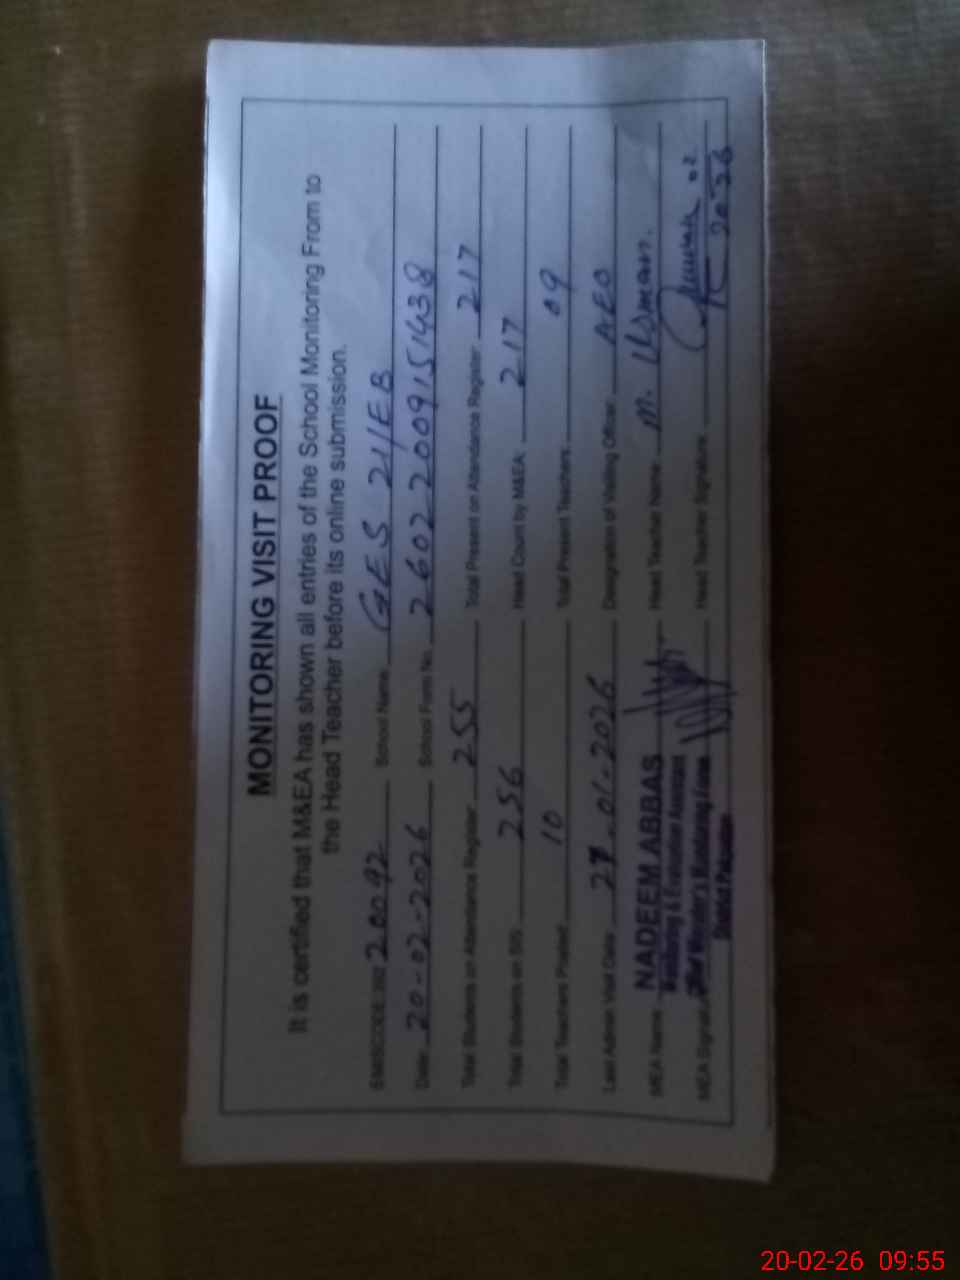 MONITORING VISIT PROOF
It is certified that M&EA has shown all entries of the School Monitoring From to
the Head Teacher before its online submission.
EMISCODE:392 20092 School Name GES 21/EB
Date: 20-02-2026 School Form No. 26022009151438
Total Students on Attendance Register: 255 Total Present on Attendance Register: 217
Total Students on SIS: 256 Head Count by M&EA: 217
Total Teachers Posted: 10 Total Present Teachers: 09
Last Admin Visit Date: 27-01-2026 Designation of Visiting Officer: AEO
MEA Name: NADEEM ABBAS Head Teacher Name: M. Usman.
Monitoring & Evaluation Assistant
MEA Signature Head Teacher Signature
Chief Minister's Monitoring Force
District Pakpattan
20-02-26 09:55